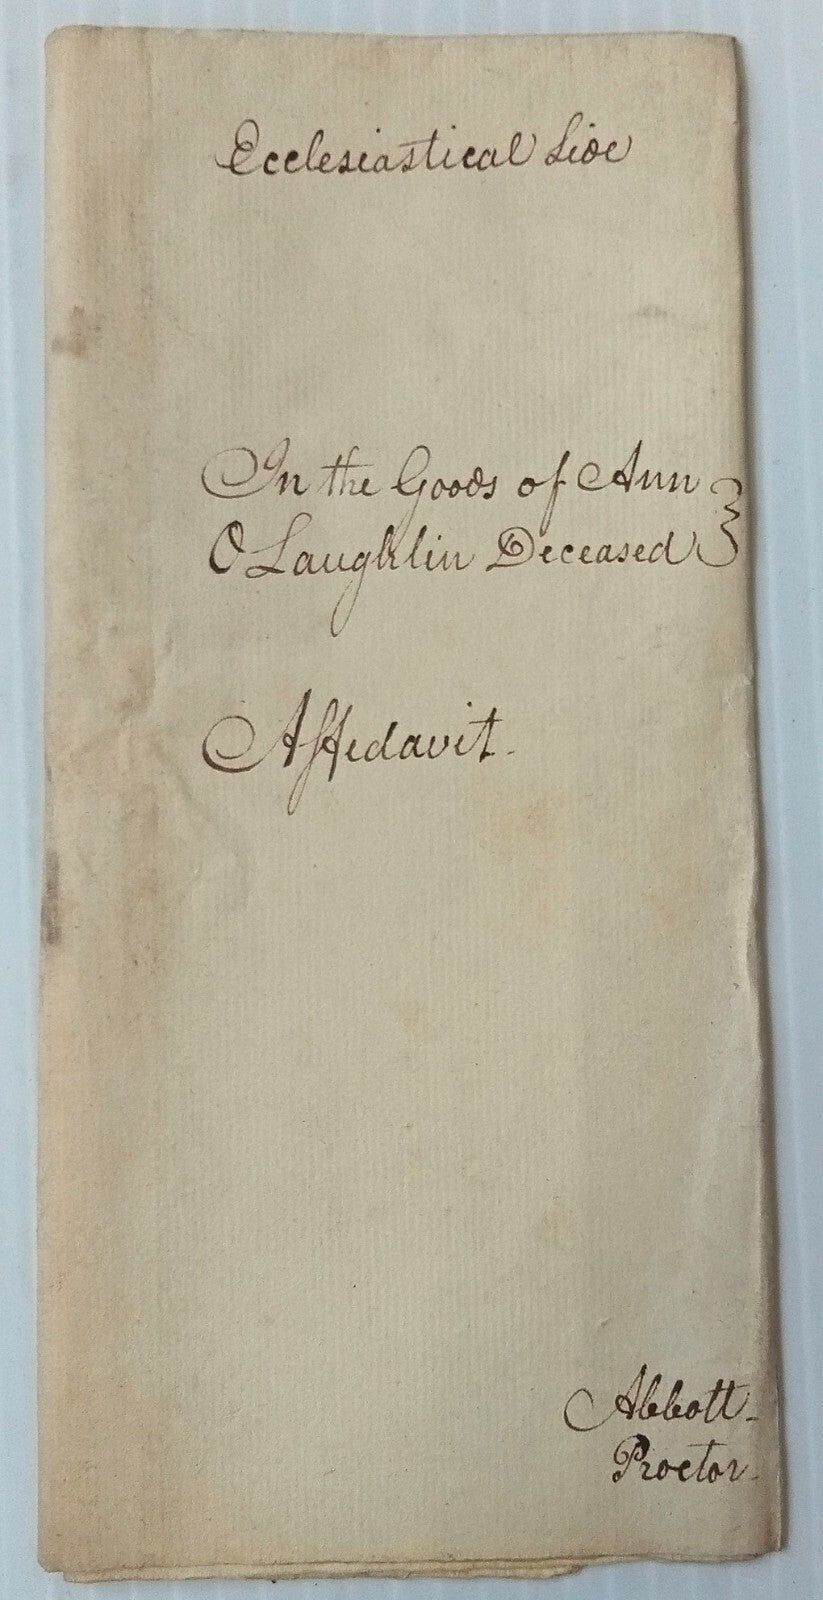 Ecclesiastical Side
In the Goods of Ann
O Laughlin Deceased
Affedavit.
Abbott
Proctor